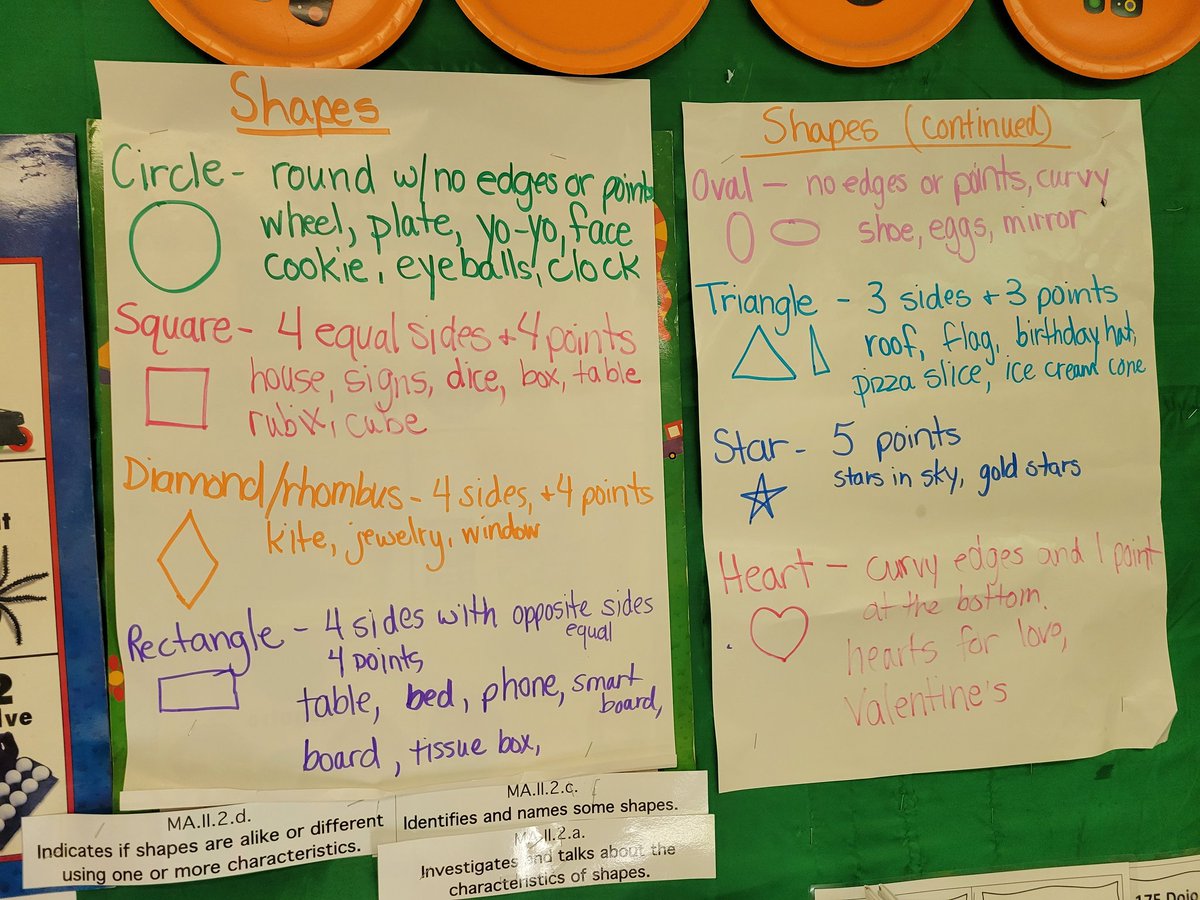 Shapes
Circle - round w/no edges or points
wheel, plate, yo-yo, face
cookie, eyeballs, clock
Square - 4 equal sides + 4 points
house, signs, dice, box, table
rubix, cube
Diamond/rhombus - 4 sides, +4 points
kite, jewelry, window
Rectangle - 4 sides with opposite sides
equal
4 points
table, bed, phone, smart
board,
board, tissue box,
Shapes (continued)
Oval - no edges or points, curvy
shoe, eggs, mirror
Triangle - 3 sides + 3 points
roof, flag, birthday hat,
pizza slice, ice cream cone
Star - 5 points
stars in sky, gold stars
Heart - curvy edges and 1 point
at the bottom.
hearts for love,
Valentine's
MA.II.2.d.
Indicates if shapes are alike or different
using one or more characteristics.
MA.II.2.c.
Identifies and names some shapes.
MA.II.2.a.
Investigates and talks about the
characteristics of shapes.